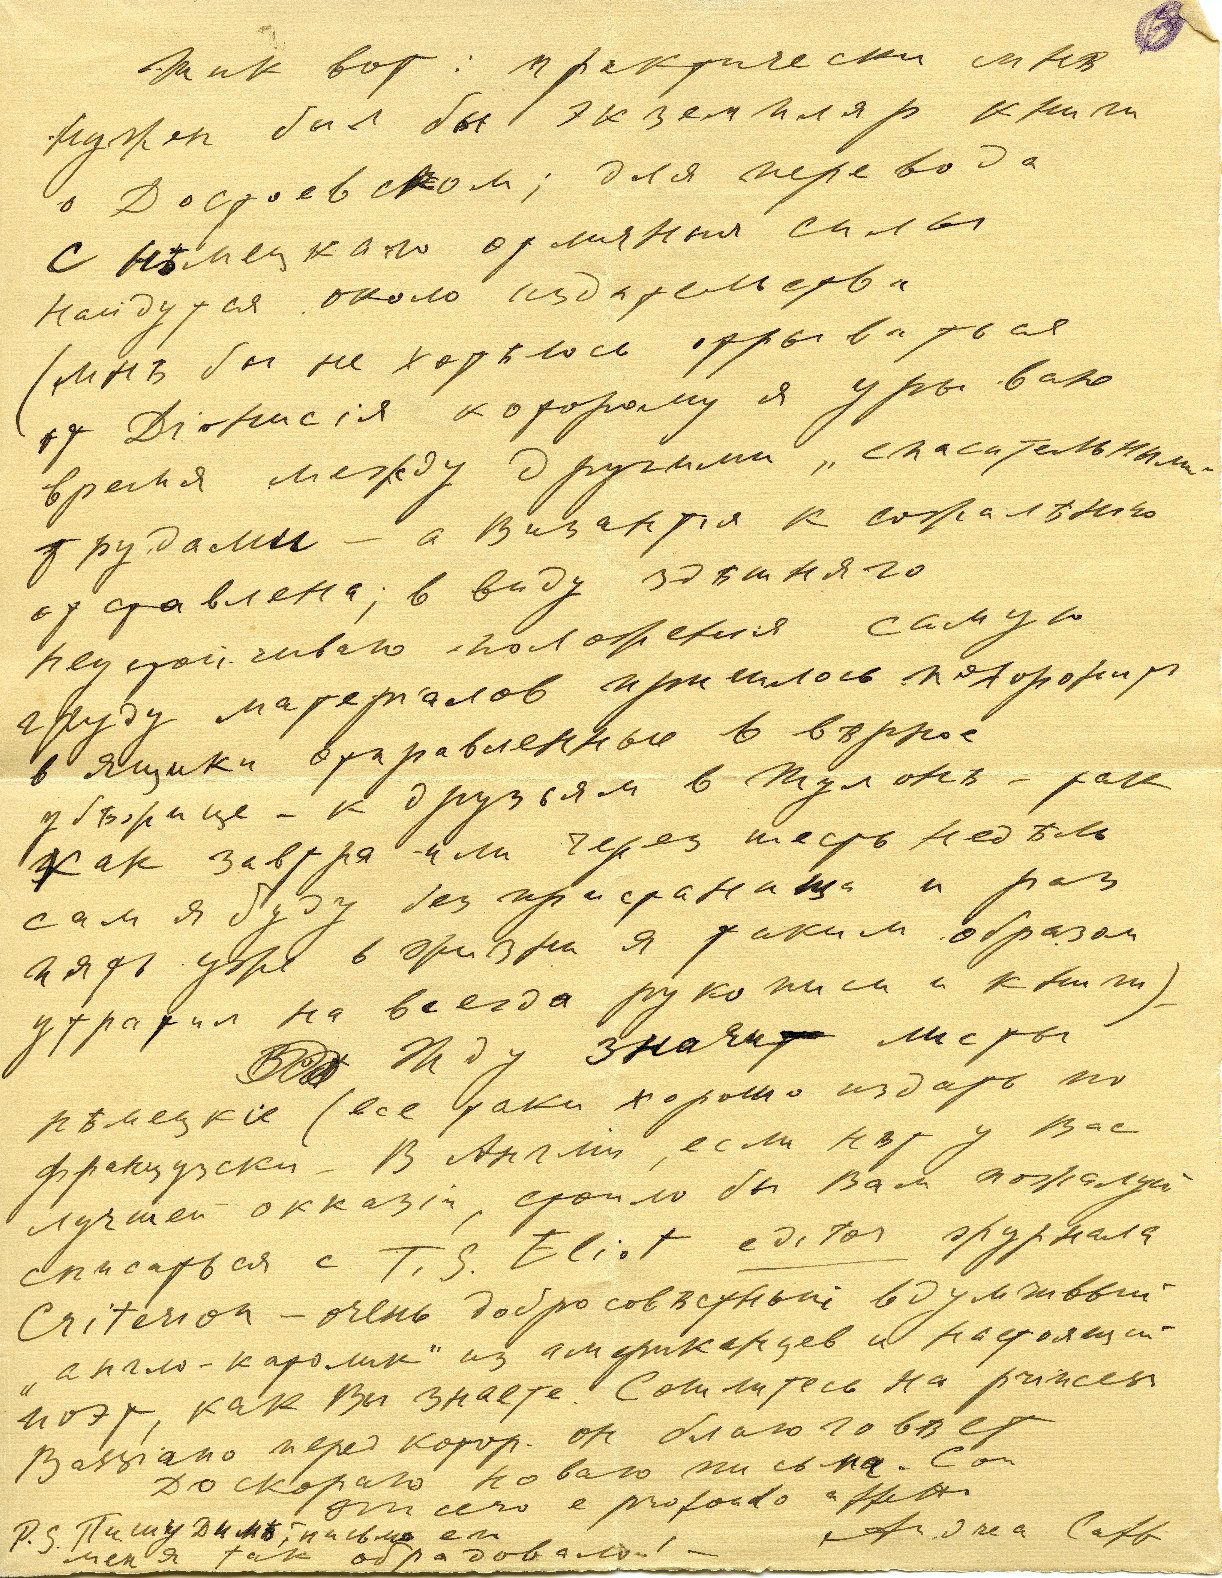 Так вот: практически мнѣ
нужен был бы экземпляр книги
о Достоевском; для перевода
с нѣмецкаго отличныя силы
найдутся около издательства
(мнѣ бы не хотѣлось отрываться
от Діонисія которому я урываю
время между другими „спасительными"
трудами — а Византія к сожалѣнію
отставлена; в виду здѣшняго
неустойчиваго положенія самую
груду матеріалов пришлось похоронить
в ящики отправленные в вѣрное
убѣжище — к друзьям в Тулонѣ — так
как завтра или через шесть недѣль
сам я буду без пристанища и раз
пять уже в жизни я таким образом
утратил на всегда рукописи и книги)
Жду значит листы
нѣмецкіе (все таки хорошо издать по
французски — В Англіи, если нѣт у Вас
лучшей окказіи, стоило бы Вам пожалуй
списаться с T. S. Eliot editor журнала
Criterion — очень добросовѣстный вдумчивый
„англо-католик" из американцев и настоящій
поэт, как Вы знаете. Сошлитесь на princess
Bassiano перед котор. он благоговѣет
До скораго новаго письма. Con
sincero e profondo affetto
Andrea Caff
P.S. Пишу Димѣ, письмо ея
меня так обрадовало! —